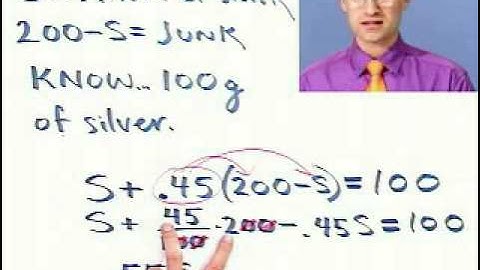 200-S = JUNK
KNOW... 100g
of silver.
S + .45(200-S) = 100
S + 45/100 · 200 - .45S = 100
.55S